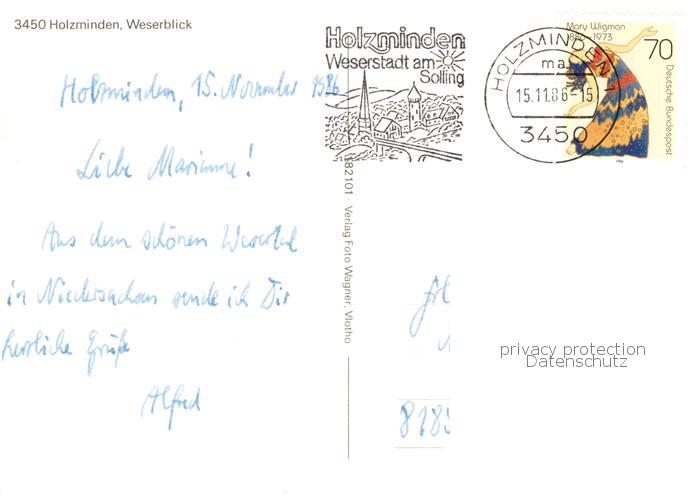 3450 Holzminden, Weserblick
Holzminden, 15. November 1986
Liebe Marianne!
Aus dem schönen Wesertal
in Niedersachsen sende ich Dir
herzliche Grüße
Alfred
Holzminden
Weserstadt am
Solling
HOLZMINDEN 1
ma
15.11.86-15
3450
Mary Wigman
1886-1973
70
Deutsche Bundespost
1986
82101 · Verlag Foto Wagner, Vlotho
privacy protection
Datenschutz
818